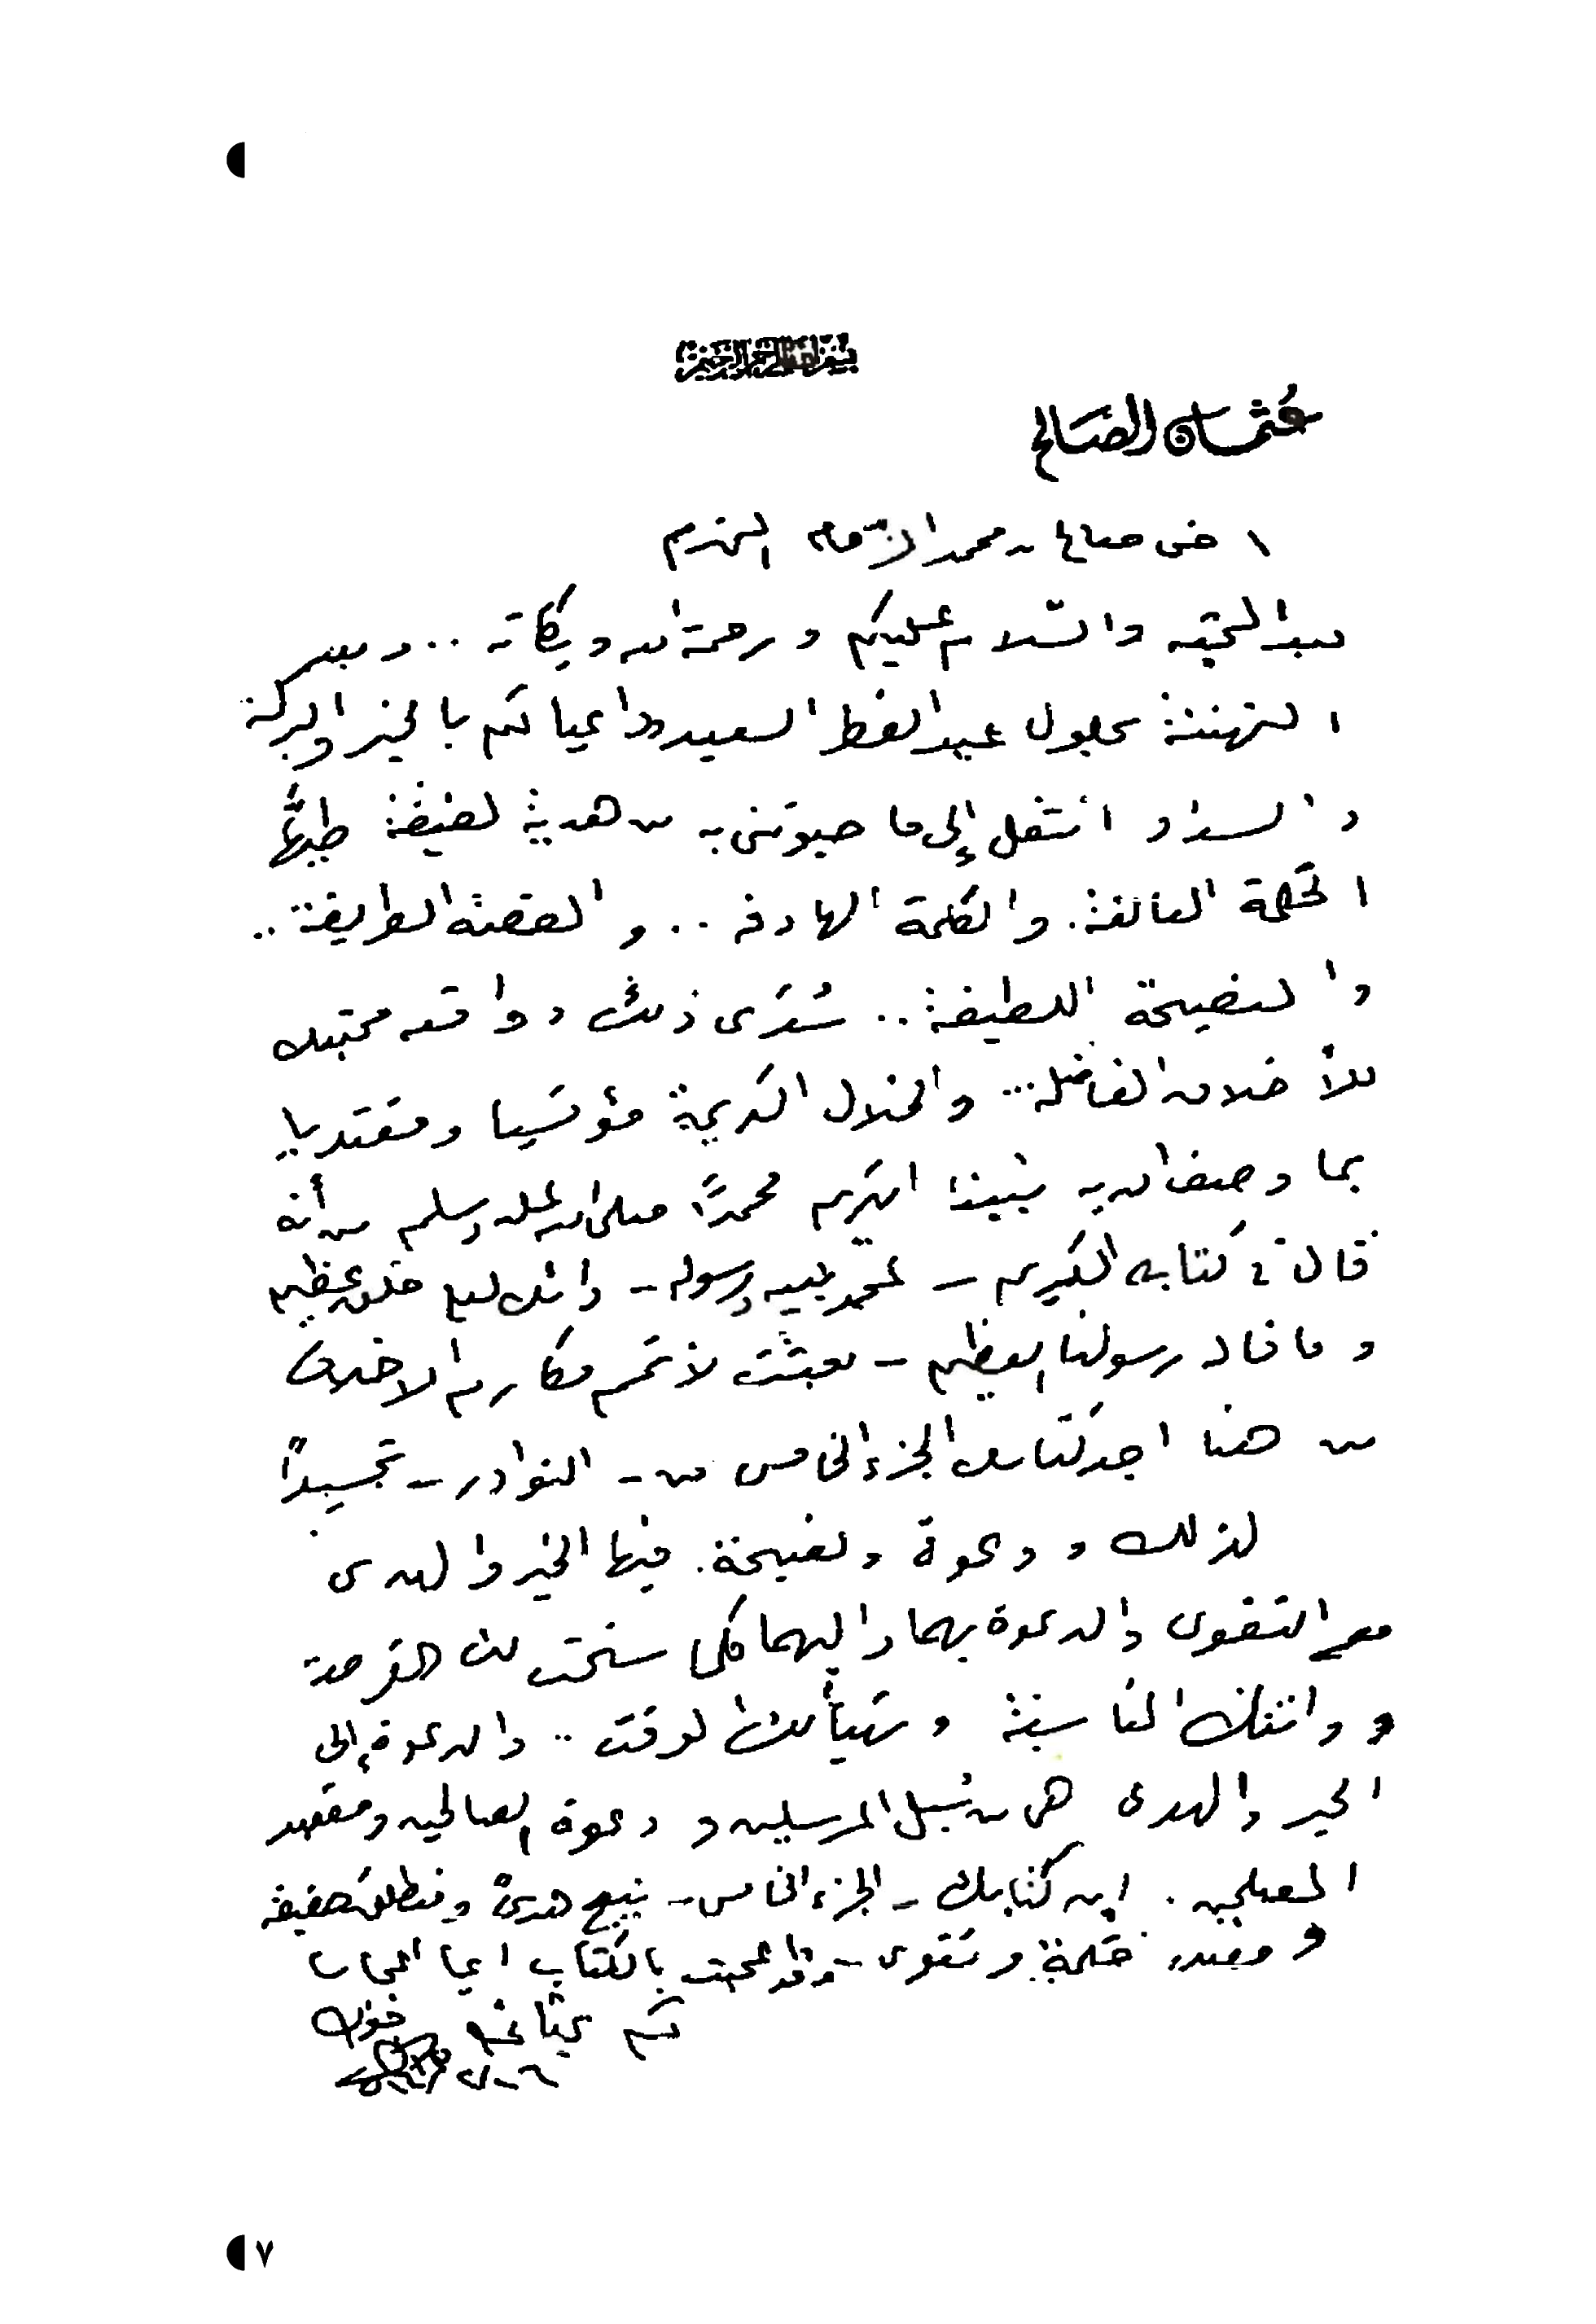 بسم الله الرحمن الرحيم
عثمان الصالح
اخي صالح محمد الزمام المحترم
بعد التحية والسلام عليكم ورحمة الله وبركاته .. وبعد
التهنئة بحلول عيد الفطر السعيد وداعيا لكم بالخير والبركة
والسداد انتقل إلى ما حبوتني به من هدية لطيفة طيها
الحكمة البالغة. والكلمة الهادفة .. والقصة الطريفة ..
والنصيحة اللطيفة .. ذلك محبتك
للأخلاق الفاضلة ... والخلال الكريمة مؤتسيا ومقتديا
بما وصف الله به نبينا الكريم محمدًا صلى الله عليه وسلم من أنه
قال في كتابه الكريم – عن نبيه ورسوله – وانك لعلى خلق عظيم
وما قال رسولنا العظيم – بعثت لأتمم مكارم الاخلاق
من هنا اجد كتابك الجزء الخامس من – النوادر – تجسيداً
لذلك ودعوة ونصيحة. فيها الخير والهدى
مع التقوى والدعوة بهما واليهما كلما سنحت لك الفرصة
وواتتك المناسبة وتهيأ لك الوقت .. والدعوة إلى
الخير والهدى هي من سُبل المرسلين ودعوة الصالحين ومقصد
المصلحين . ان كتابك – الجزء الخامس – نبع هدىً ومنطلق حقيقة
ومصدر حكمة وتقوى – وقد اعجبت بالكتاب ايما اعجاب
لكم تحياتي اخوك
٧